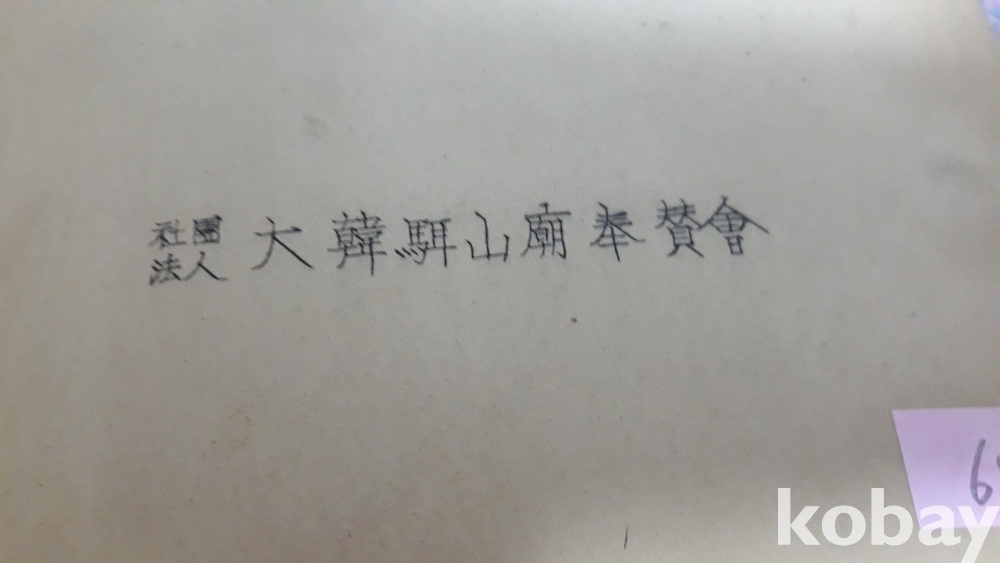 社團
法人
大韓駬山廟奉賛會
kobay